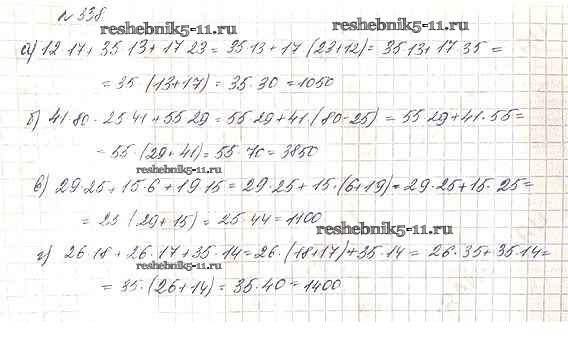 № 338
reshebnik5-11.ru
reshebnik5-11.ru
а) 12·17+35·13+17·23=35·13+17·(23+12)=35·13+17·35=
=35·(13+17)=35·30=1050
б) 41·80-25·41+55·29=55·29+41·(80-25)=55·29+41·55=
=55·(29+41)=55·70=3850
reshebnik5-11.ru
в) 29·25+15·6+19·15=29·25+15·(6+19)=29·25+15·25=
=25·(29+15)=25·44=1100
reshebnik5-11.ru
г) 26·18+26·17+35·14=26·(18+17)+35·14=26·35+35·14=
reshebnik5-11.ru
=35·(26+14)=35·40=1400